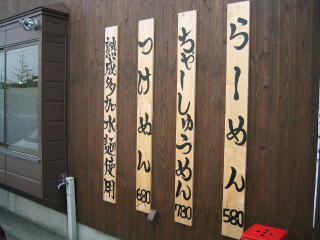 らーめん 580
ちゃーしゅうめん 780
つけめん 680
熟成多加水麺使用